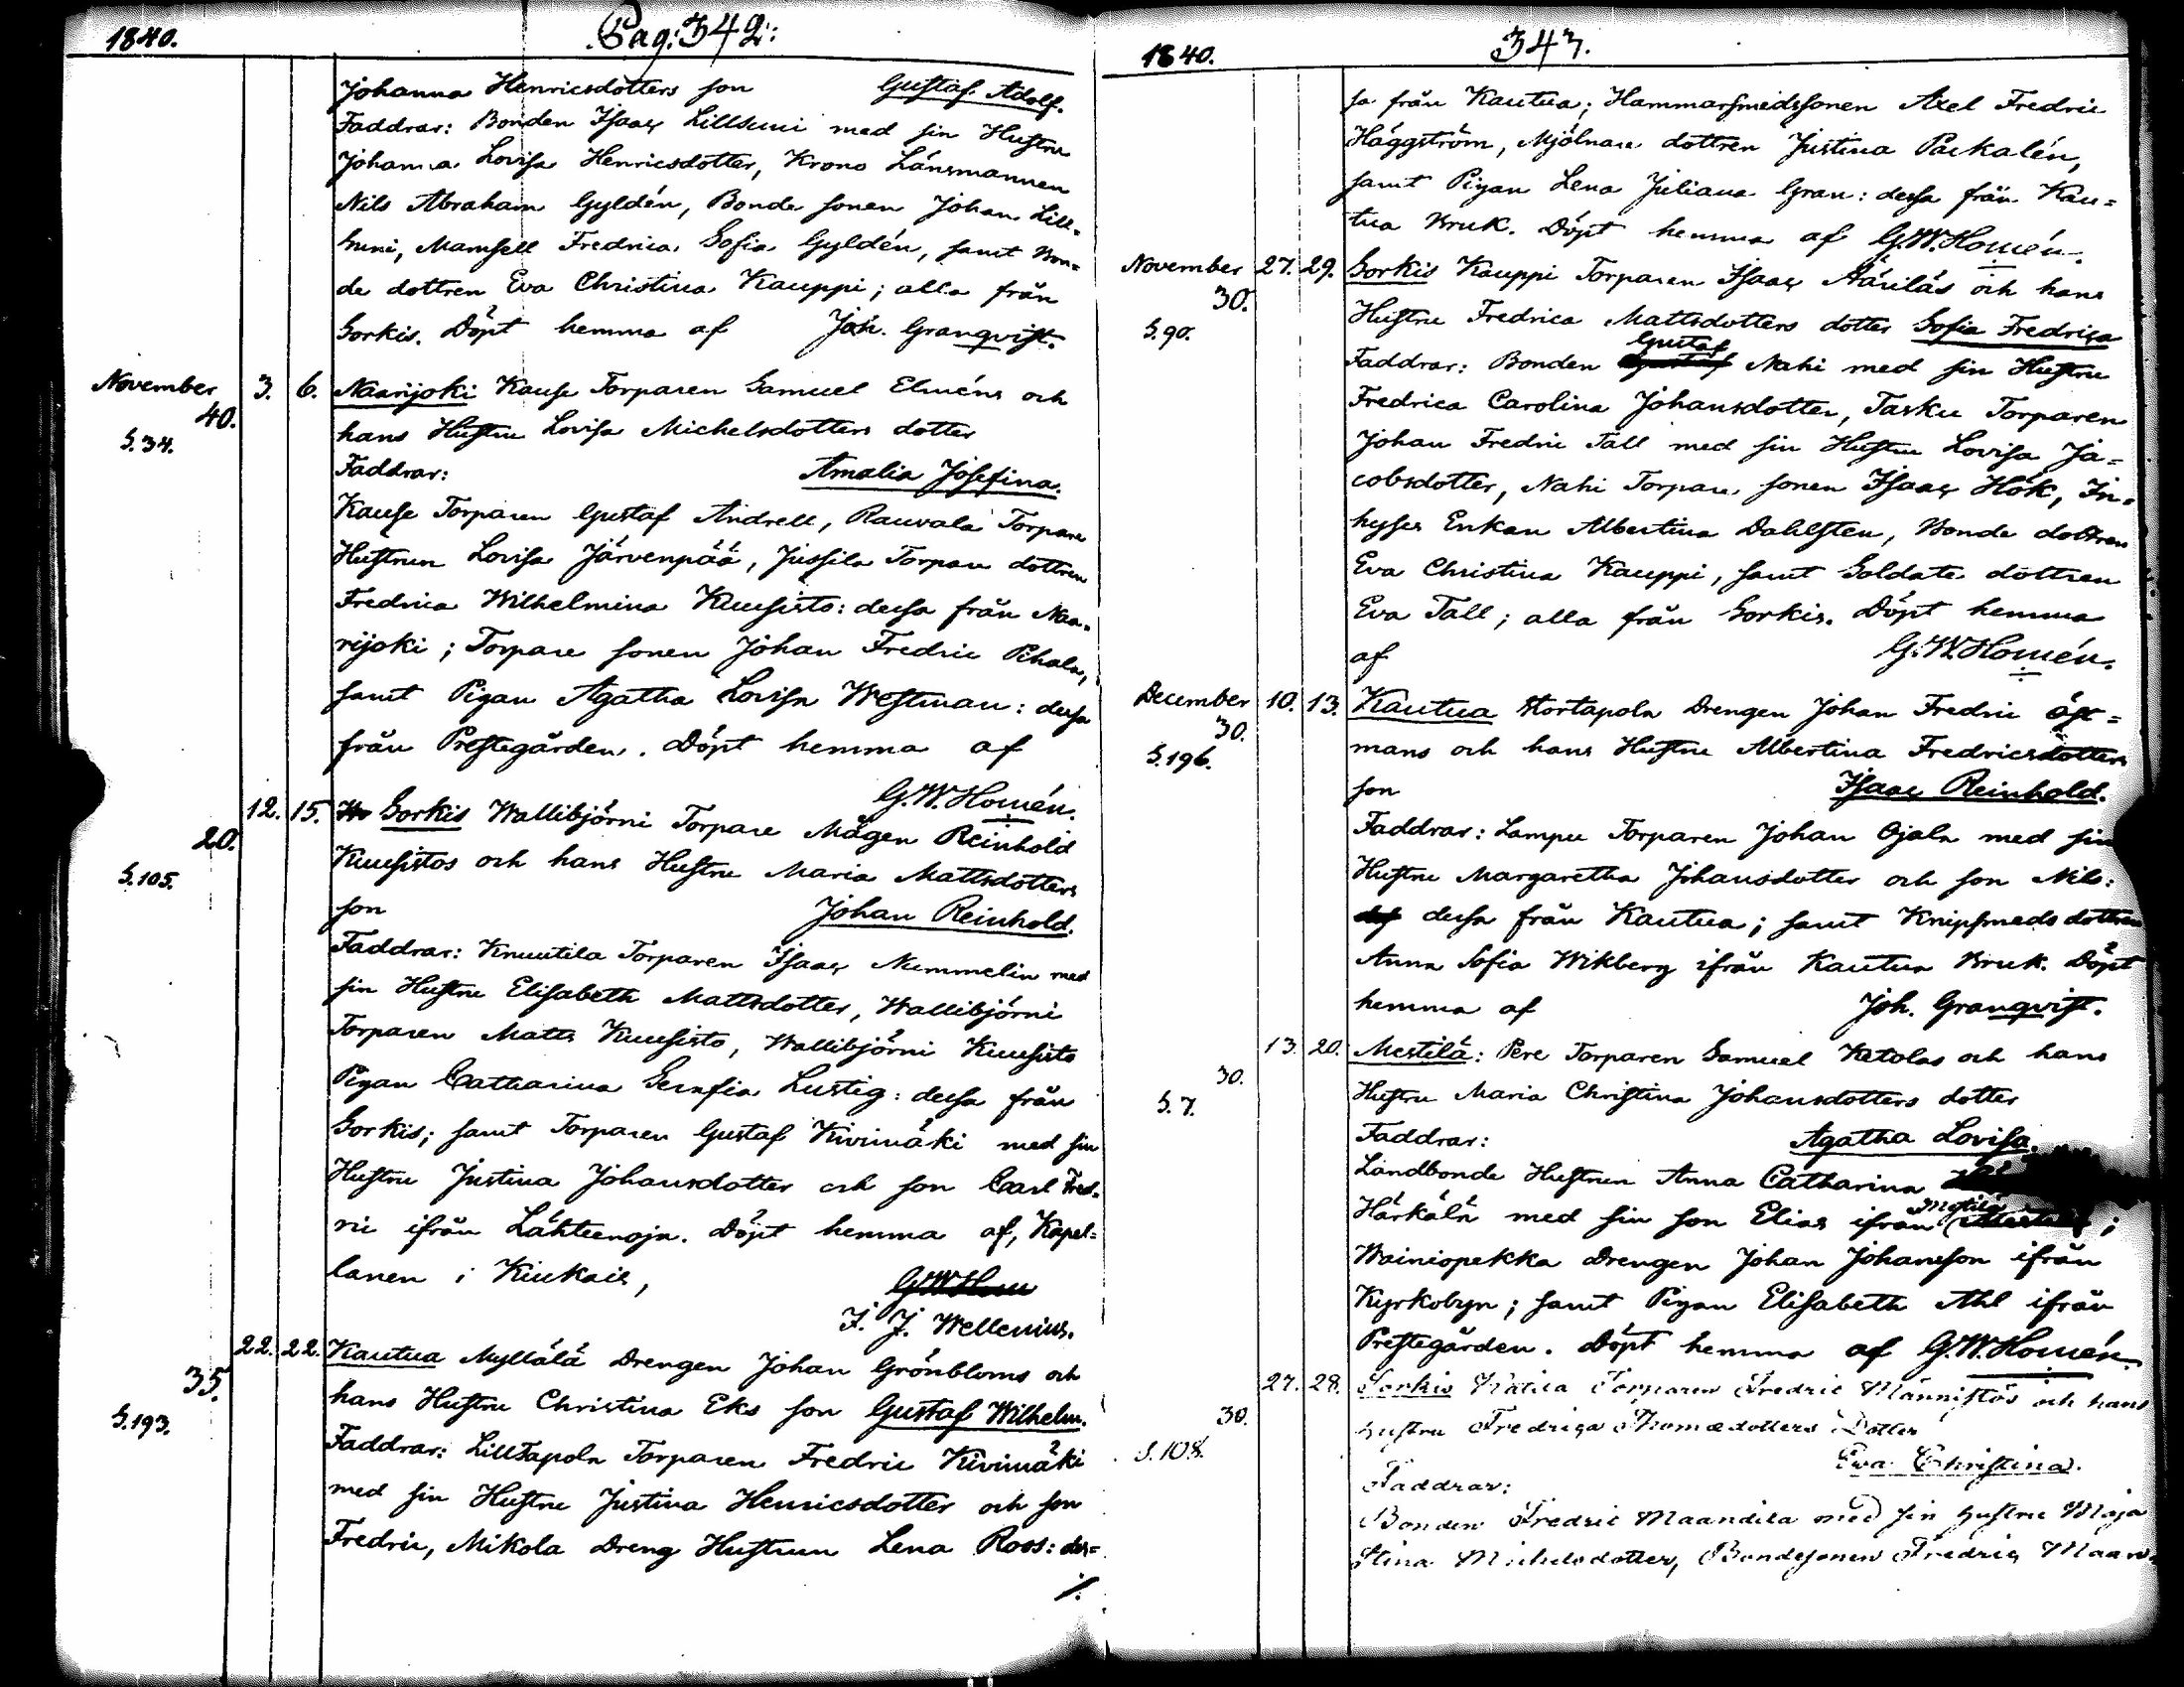 1840.
Pag: 342:
Johanna Henricsdotters son Gustaf Adolf.
Faddrar: Bonden Isaac Lillsuni med sin Hustru
Johanna Lovisa Henricsdotter, Krono Länsmannen
Nils Abraham Gyldén, Bonde sonen Johan Lill-
suni, Mamsell Fredrica Sofia Gyldén, samt Bon-
de dottren Eva Christina Kauppi; alla från
Sorkis. Döpt hemma af Joh. Granqvist.
November 3. 6. Naarijoki Kause Torparen Samuel Elméns och
40.
hans Hustru Lovisa Michelsdotters dotter
S. 34.
Faddrar: Amalia Josefina.
Kause Torparen Gustaf Andrell, Rauvala Torpare
Hustrun Lovisa Järvenpää, Jussila Torpare dottren
Fredrica Wilhelmina Kuusisto: dessa från Naa-
rijoki; Torpare sonen Johan Fredric Pihala,
samt Pigan Agatha Lovisa Westman: dessa
från Prestegården. Döpt hemma af
G. W. Homén.
12. 15. Sorkis Wallibjörni Torpare Mågen Reinhold
20.
Kuusistos och hans Hustru Maria Mattsdotters
S. 105.
son Johan Reinhold.
Faddrar: Knuutila Torparen Isaac Nummelin med
sin Hustru Elisabeth Mattsdotter, Wallibjörni
Torparen Matts Kuusisto, Wallibjörni Kuusisto
Pigan Catharina Serafia Lustig: dessa från
Sorkis; samt Torparen Gustaf Kivimäki med sin
Hustru Justina Johansdotter och son Carl Fred-
ric ifrån Lähteenoja. Döpt hemma af, Kapel-
lanen i Kiukais,
J. J. Wellenius.
22. 22. Kautua Myllälä Drengen Johan Grönbloms och
35.
hans Hustru Christina Eks son Gustaf Wilhelm.
S. 193.
Faddrar: Lilltapola Torparen Fredric Kivimäki
med sin Hustru Justina Henricsdotter och son
Fredric, Mikola Dreng Hustrun Lena Ross: des-
./.
1840.
343.
sa från Kautua; Hammarsmedssonen Axel Fredric
Häggström, Mjölnare dottren Justina Packalén,
samt Pigan Lena Juliana Gran: dessa från Kau-
tua Bruk. Döpt hemma af G. W. Homén.
November 27. 29. Sorkis Kauppi Torparen Isaac Ääriläs och hans
30.
Hustru Fredrica Mattsdotters dotter Sofia Fredrica
S. 90.
Faddrar: Bonden Gustaf Nahi med sin Hustru
Fredrica Carolina Johansdotter, Tasku Torparen
Johan Fredric Tall med sin Hustru Lovisa Ja-
cobsdotter, Nahi Torpare sonen Isaac Hök, In-
hyses Enkan Albertina Dahlsten, Bonde dottren
Eva Christina Kauppi, samt Soldate dottren
Eva Tall; alla från Sorkis. Döpt hemma
af G. W. Homén.
December 10. 13. Kautua Stortapola Drengen Johan Fredric Öst-
30.
mans och hans Hustru Albertina Fredricsdotters
S. 196.
son Isaac Reinhold.
Faddrar: Lampu Torparen Johan Ojala med sin
Hustru Margaretha Johansdotter och son Nils:
dessa från Kautua; samt Knipsmeds dottren
Anna Sofia Wikberg ifrån Kautua Bruk. Döpt
hemma af Joh. Granqvist.
13. 20. Mestilä: Pere Torparen Samuel Ketolas och hans
30.
Hustru Maria Christina Johansdotters dotter
S. 7.
Faddrar: Agatha Lovisa.
Landbonde Hustrun Anna Catharina
Härkälä med sin son Elias ifrån Mestilä;
Wainiopekka Drengen Johan Johansson ifrån
Kyrkobyn; samt Pigan Elisabeth Ahl ifrån
Prestegården. Döpt hemma af G. W. Homén.
27. 28. Sorkis Torparen Fredric Männistös och hans
30.
Hustru Fredrica Thomædotters Dotter
S. 108.
Eva Christina.
Faddrar:
Bonden Fredric Maandila med sin Hustru Maja
Stina Michelsdotter, Bondesonen Fredric Maan-